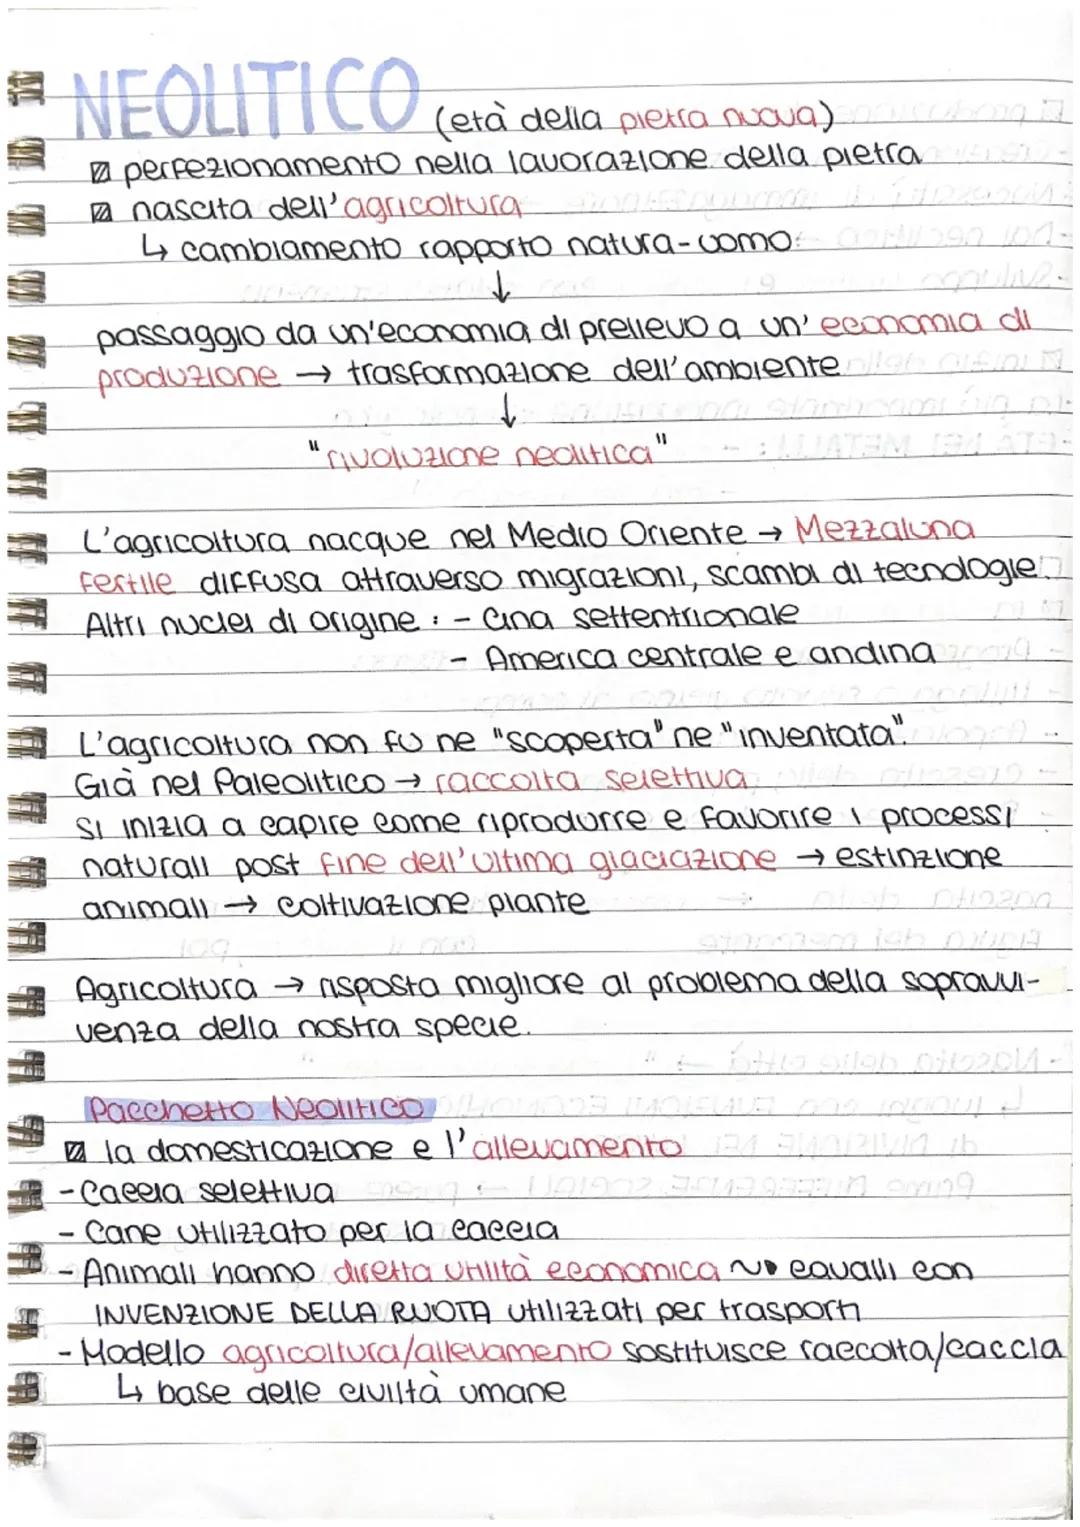 NEOLITICO (età della pietra nuova)
perfezionamento nella lavorazione della pietra
nascita dell'agricoltura
↳ cambiamento rapporto natura-uomo:
↓
passaggio da un'economia di prelievo a un'economia di
produzione → trasformazione dell'ambiente
↓
"rivoluzione neolitica"
L'agricoltura nacque nel Medio Oriente → Mezzaluna
fertile diffusa attraverso migrazioni, scambi di tecnologie
Altri nuclei di origine : - Cina settentrionale
- America centrale e andina
L'agricoltura non fu ne "scoperta" ne "inventata".
Già nel Paleolitico → raccolta selettiva
si inizia a capire come riprodurre e favorire i processi
naturali post fine dell'ultima glaciazione → estinzione
animali → coltivazione piante
Agricoltura → risposta migliore al problema della sopravvi-
venza della nostra specie.
Pacchetto Neolitico
la domesticazione e l'allevamento
- Caccia selettiva
- Cane utilizzato per la caccia
- Animali hanno diretta utilità economica ~> cavalli con
INVENZIONE DELLA RUOTA utilizzati per trasporti
- Modello agricoltura/allevamento sostituisce raccolta/caccia
↳ base delle civiltà umane